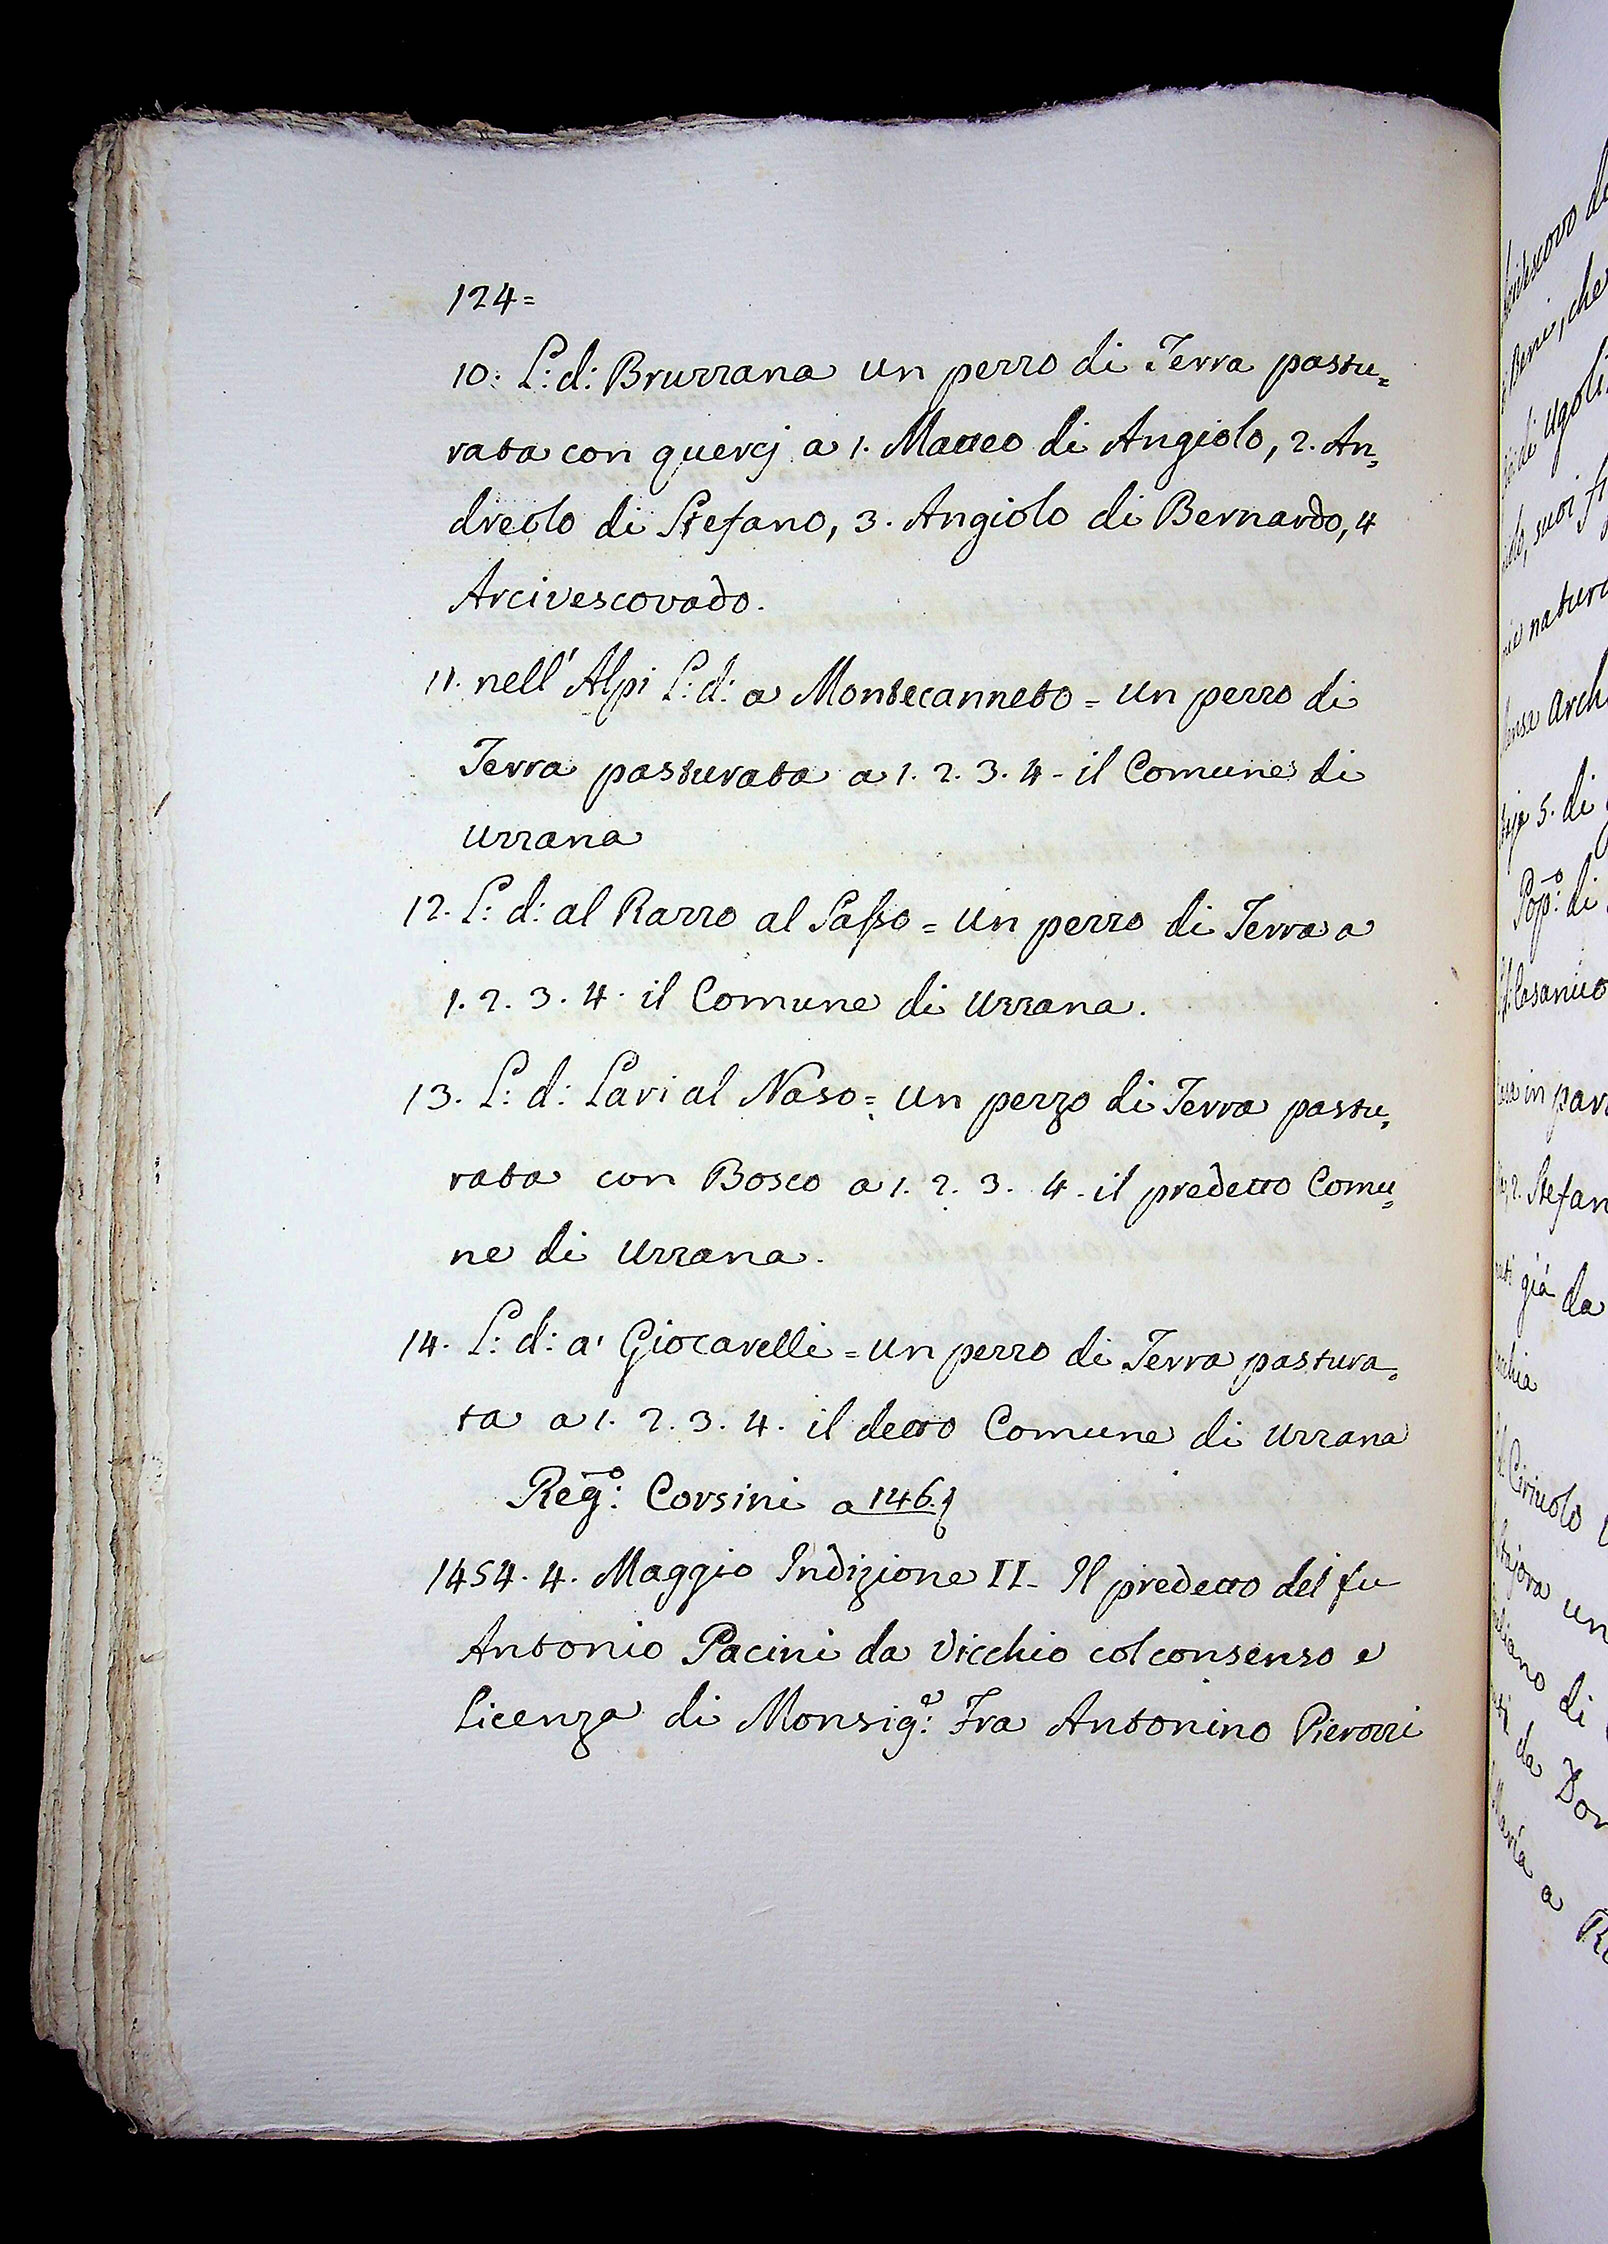 124=
10: L: d: Bruzzana un pezzo di Terra pastu=
rata con quercj a 1. Matteo di Angiolo, 2. An=
dreolo di Stefano, 3. Angiolo di Bernardo, 4
Arcivescovado.
11. nell' Alpi L: d: a Montecanneto = un pezzo di
Terra pasturata a 1. 2. 3. 4 - il Comune di
Uzzana
12. L: d: al Razzo al Sasso = un pezzo di Terra a
1. 2. 3. 4. il Comune di Uzzana.
13. L: d: Lavi al Naso = un pezzo di Terra pastu=
rata con Bosco a 1. 2. 3. 4. il predetto Comu=
ne di Uzzana.
14. L: d: a' Giocarelli = un pezzo di Terra pastura=
ta a 1. 2. 3. 4. il detto Comune di Uzzana
Reg:º Corsini a 146.
1454. 4. Maggio Indizione II - Il predetto del fu
Antonio Pacini da Vicchio col consenso e
Licenza di Monsig:e Fra Antonino Pierozzi
Beni, che
di Ugoli
suoi
Arch
5. di
Pop:º di
in par
2. Stefan
già da
un
di
da Don
Maria a